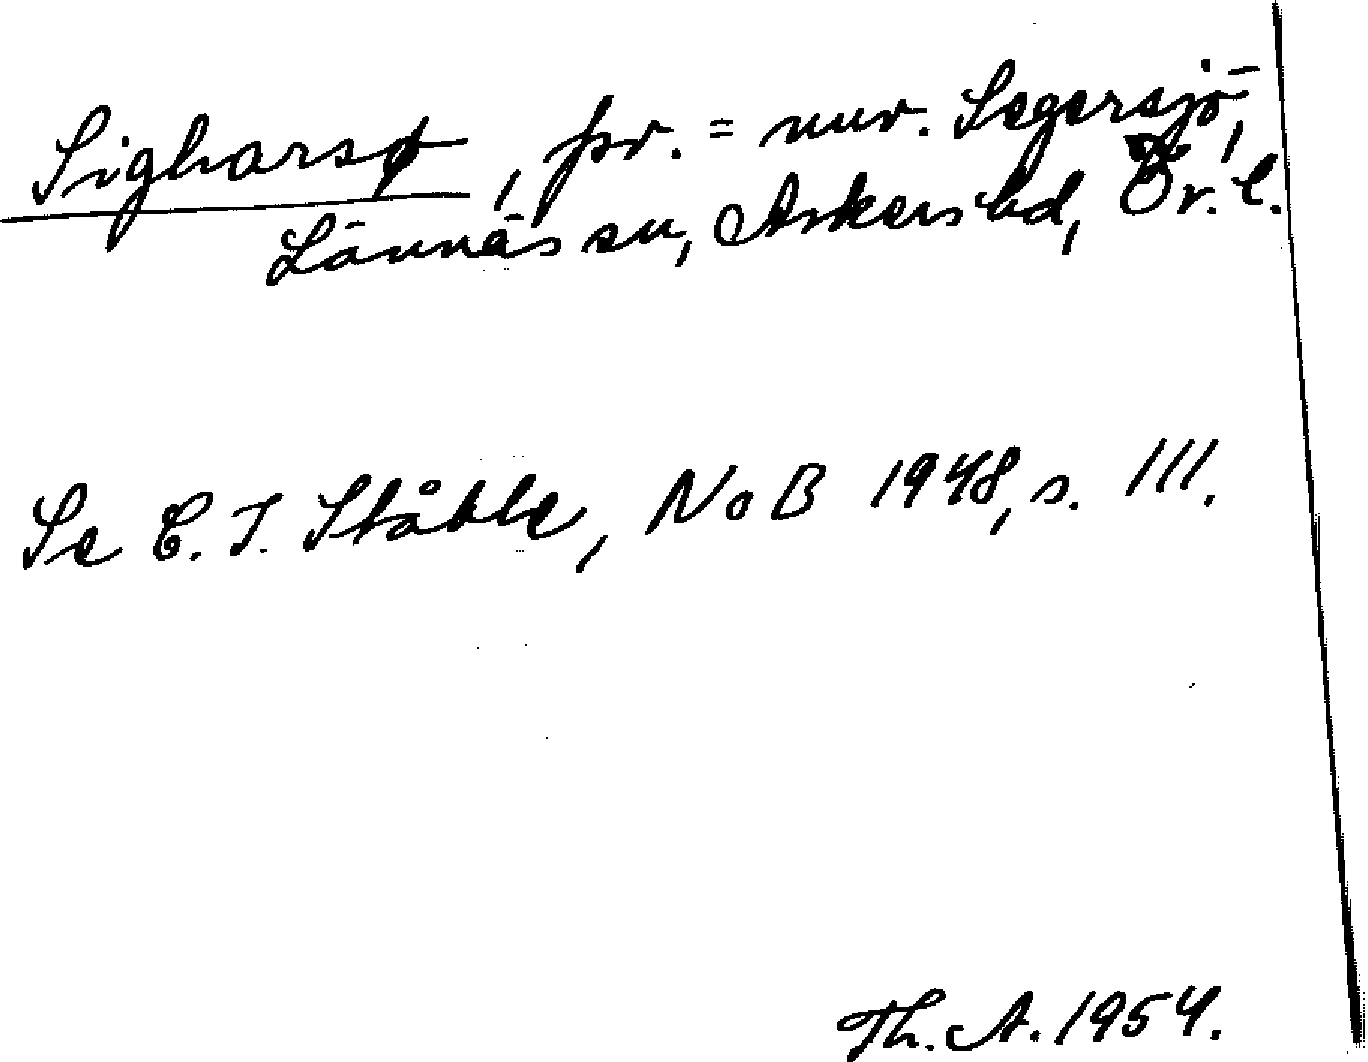 Sigharsø, fsv. = nuv. Segersjö,
Lännäs sn, Askers hd, Ör. l.
Se C. I. Ståhle, NoB 1948, s. 111.
Th. A. 1954.